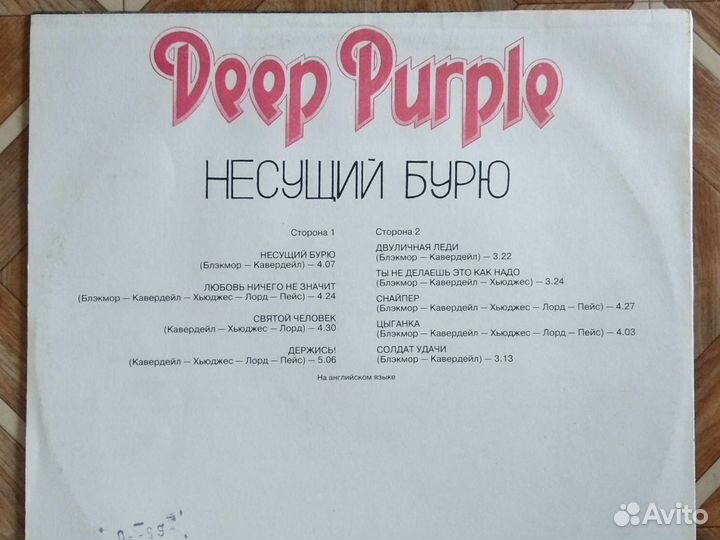 Deep Purple
НЕСУЩИЙ БУРЮ
Сторона 1
НЕСУЩИЙ БУРЮ
(Блэкмор — Кавердейл) — 4.07
ЛЮБОВЬ НИЧЕГО НЕ ЗНАЧИТ
(Блэкмор — Кавердейл — Хьюджес — Лорд — Пейс) — 4.24
СВЯТОЙ ЧЕЛОВЕК
(Кавердейл — Хьюджес — Лорд) — 4.30
ДЕРЖИСЬ!
(Кавердейл — Хьюджес — Лорд — Пейс) — 5.06
Сторона 2
ДВУЛИЧНАЯ ЛЕДИ
(Блэкмор — Кавердейл) — 3.22
ТЫ НЕ ДЕЛАЕШЬ ЭТО КАК НАДО
(Блэкмор — Кавердейл — Хьюджес) — 3.24
СНАЙПЕР
(Блэкмор — Кавердейл — Хьюджес — Лорд — Пейс) — 4.27
ЦЫГАНКА
(Блэкмор — Кавердейл — Хьюджес — Лорд — Пейс) — 4.03
СОЛДАТ УДАЧИ
(Блэкмор — Кавердейл) — 3.13
На английском языке
Avito